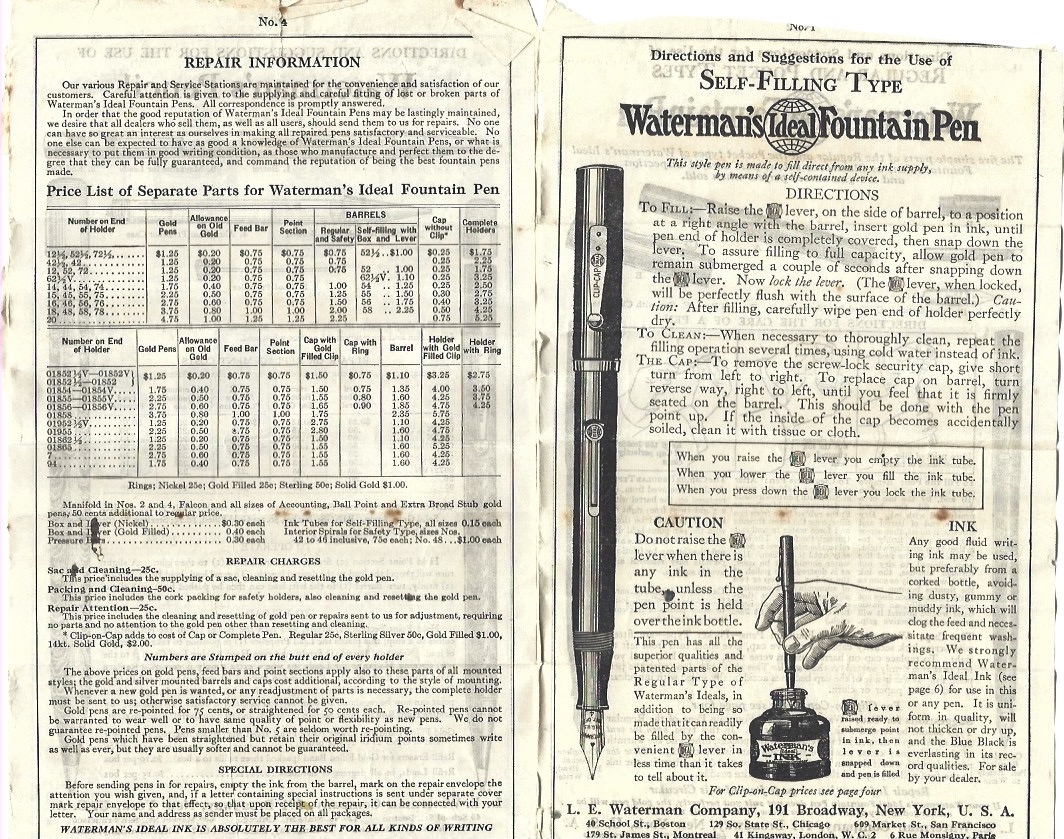 No. 4
REPAIR INFORMATION
Our various Repair and Service Stations are maintained for the convenience and satisfaction of our
customers. Careful attention is given to the supplying and careful fitting of lost or broken parts of
Waterman's Ideal Fountain Pens. All correspondence is promptly answered.
In order that the good reputation of Waterman's Ideal Fountain Pens may be lastingly maintained,
we desire that all dealers who sell them, as well as all users, should send them to us for repairs. No one
can have so great an interest as ourselves in making all repaired pens satisfactory and serviceable. No
one else can be expected to have as good a knowledge of Waterman's Ideal Fountain Pens, or what is
necessary to put them in good writing condition, as those who manufacture and perfect them to the de-
gree that they can be fully guaranteed, and command the reputation of being the best fountain pens
made.
Price List of Separate Parts for Waterman's Ideal Fountain Pen
Number on End of Holder | Gold Pens | Allowance on Old Gold | Feed Bar | Point Section | BARRELS Regular and Safety | Self-filling with Box and Lever | Cap without Clip* | Complete Holders
12½, 52½, 72½, $1.25 $0.20 $0.75 $0.75 $0.75 52½..$1.00 $0.25 $1.75
42½, 42 1.25 0.20 0.75 0.75 0.25 2.25
12, 52, 72 1.25 0.20 0.75 0.75 0.75 52 1.00 0.25 1.75
62½V. 1.25 0.20 0.75 0.75 62½V. 1.10 0.25 3.25
14, 44, 54, 74 1.75 0.40 0.75 0.75 1.00 54 .. 1.25 0.25 2.50
15, 45, 55, 75 2.25 0.50 0.75 0.75 1.25 55 .. 1.50 0.30 2.75
16, 46, 56, 76 2.75 0.60 0.75 0.75 1.50 56 .. 1.75 0.40 3.25
18, 48, 58, 78 3.75 0.80 1.00 1.00 2.00 58 .. 2.25 0.50 4.25
20 4.75 1.00 1.25 1.25 2.25 0.75 5.25
Number on End of Holder | Gold Pens | Allowance on Old Gold | Feed Bar | Point Section | Cap with Gold Filled Clip | Cap with Ring | Barrel | Holder with Gold Filled Clip | Holder with Ring
01852½V—01852V }
01852½—01852 } $1.25 $0.20 $0.75 $0.75 $1.50 $0.75 $1.10 $3.25 $2.75
01854—01854V 1.75 0.40 0.75 0.75 1.50 0.75 1.35 4.00 3.50
01855—01855V 2.25 0.50 0.75 0.75 1.55 0.80 1.60 4.25 3.75
01856—01856V 2.75 0.60 0.75 0.75 1.65 0.90 1.85 4.75 4.25
01858 3.75 0.80 1.00 1.00 1.75 2.35 5.75
01952½V. 1.25 0.20 0.75 0.75 2.75 1.10 4.25
01955 2.25 0.50 0.75 2.80 1.60 4.75
01862½ 1.25 0.20 0.75 0.75 1.50 1.10 4.25
01865 2.25 0.50 0.75 0.75 1.55 1.60 5.25
7 2.75 0.60 0.75 0.75 1.55 1.60 4.25
94 1.75 0.40 0.75 0.75 1.55 1.60 4.25
Rings; Nickel 25c; Gold Filled 25c; Sterling 50c; Solid Gold $1.00.
Manifold in Nos. 2 and 4, Falcon and all sizes of Accounting, Ball Point and Extra Broad Stub gold
pens, 50 cents additional to regular price.
Box and Lever (Nickel) $0.30 each Ink Tubes for Self-Filling Type, all sizes 0.15 each
Box and Lever (Gold Filled) 0.40 each Interior Spirals for Safety Type, sizes Nos.
Pressure Bars 0.30 each 42 to 46 inclusive, 75c each; No. 48...$1.00 each
REPAIR CHARGES
Sac and Cleaning—25c.
This price includes the supplying of a sac, cleaning and resetting the gold pen.
Packing and Cleaning—50c.
This price includes the cork packing for safety holders, also cleaning and resetting the gold pen.
Repair Attention—25c.
This price includes the cleaning and resetting of gold pen or repairs sent to us for adjustment, requiring
no parts and no attention to the gold pen other than resetting and cleaning.
* Clip-on-Cap adds to cost of Cap or Complete Pen. Regular 25c, Sterling Silver 50c, Gold Filled $1.00,
14kt. Solid Gold, $2.00.
Numbers are Stamped on the butt end of every holder
The above prices on gold pens, feed bars and point sections apply also to these parts of all mounted
styles; the gold and silver mounted barrels and caps cost additional, according to the style of mounting.
Whenever a new gold pen is wanted, or any readjustment of parts is necessary, the complete holder
must be sent to us; otherwise satisfactory service cannot be given.
Gold pens are re-pointed for 75 cents, or straightened for 50 cents each. Re-pointed pens cannot
be warranted to wear well or to have same quality of point or flexibility as new pens. We do not
guarantee re-pointed pens. Pens smaller than No. 5 are seldom worth re-pointing.
Gold pens which have been straightened but retain their original iridium points sometimes write
as well as ever, but they are usually softer and cannot be guaranteed.
SPECIAL DIRECTIONS
Before sending pens in for repairs, empty the ink from the barrel, mark on the repair envelope the
attention you wish given, and, if a letter containing special instructions is sent under separate cover
mark repair envelope to that effect, so that upon receipt of the repair, it can be connected with your
letter. Your name and address as sender must be placed on all packages.
WATERMAN'S IDEAL INK IS ABSOLUTELY THE BEST FOR ALL KINDS OF WRITING
No. 1
Directions and Suggestions for the Use of
SELF-FILLING TYPE
Waterman's Ideal Fountain Pen
This style pen is made to fill direct from any ink supply,
by means of a self-contained device.
DIRECTIONS
TO FILL:—Raise the lever, on the side of barrel, to a position
at a right angle with the barrel, insert gold pen in ink, until
pen end of holder is completely covered, then snap down the
lever. To assure filling to full capacity, allow gold pen to
remain submerged a couple of seconds after snapping down
the lever. Now lock the lever. (The lever, when locked,
will be perfectly flush with the surface of the barrel.) Cau-
tion: After filling, carefully wipe pen end of holder perfectly
dry.
TO CLEAN:—When necessary to thoroughly clean, repeat the
filling operation several times, using cold water instead of ink.
THE CAP:—To remove the screw-lock security cap, give short
turn from left to right. To replace cap on barrel, turn
reverse way, right to left, until you feel that it is firmly
seated on the barrel. This should be done with the pen
point up. If the inside of the cap becomes accidentally
soiled, clean it with tissue or cloth.
CLIP-CAP
When you raise the lever you empty the ink tube.
When you lower the lever you fill the ink tube.
When you press down the lever you lock the ink tube.
CAUTION
Do not raise the
lever when there is
any ink in the
tube, unless the
pen point is held
over the ink bottle.
This pen has all the
superior qualities and
patented parts of the
Regular Type of
Waterman's Ideals, in
addition to being so
made that it can readily
be filled by the con-
venient lever in
less time than it takes
to tell about it.
Waterman's
Ideal
INK
lever
raised ready to
submerge point
in ink, then
lever is
snapped down
and pen is filled
INK
Any good fluid writ-
ing ink may be used,
but preferably from a
corked bottle, avoid-
ing dusty, gummy or
muddy ink, which will
clog the feed and neces-
sitate frequent wash-
ings. We strongly
recommend Water-
man's Ideal Ink (see
page 6) for use in this
or any pen. It is uni-
form in quality, will
not thicken or dry up,
and the Blue Black is
everlasting in its rec-
ord qualities. For sale
by your dealer.
For Clip-on-Cap prices see page four
L. E. Waterman Company, 191 Broadway, New York, U. S. A.
40 School St., Boston 129 So. State St., Chicago 609 Market St., San Francisco
179 St. James St., Montreal 41 Kingsway, London, W. C. 2 6 Rue Monsigny, Paris